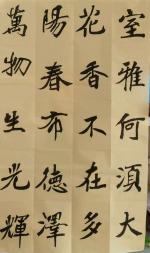 室雅何須大
花香不在多
陽春布德澤
萬物生光輝